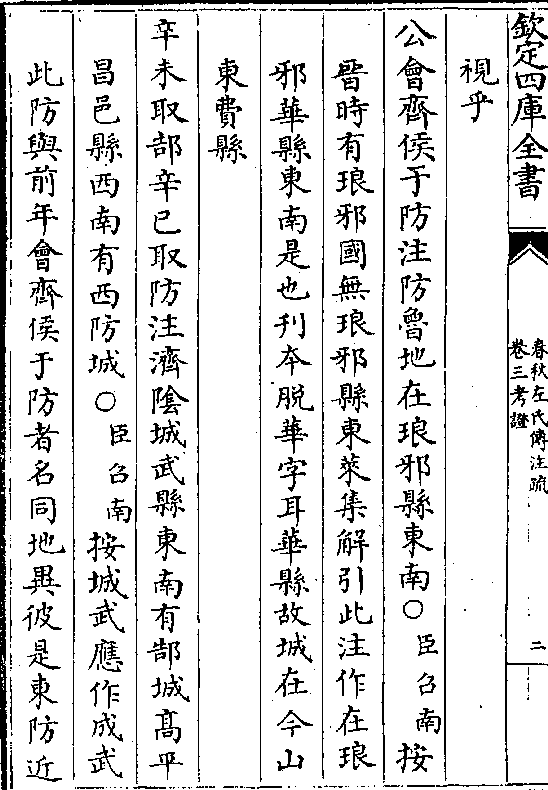 欽定四庫全書
春秋左氏傳注疏
卷三考證
二
視乎
公會齊侯于防注防魯地在琅邪縣東南○臣召南按
晉時有琅邪國無琅邪縣東萊集解引此注作在琅
邪華縣東南是也刋本脱華字耳華縣故城在今山
東費縣
辛未取郜辛已取防注濟隂城武縣東南有郜城髙平
昌邑縣西南有西防城○臣召南按城武應作成武
此防與前年會齊侯于防者名同地異彼是東防近